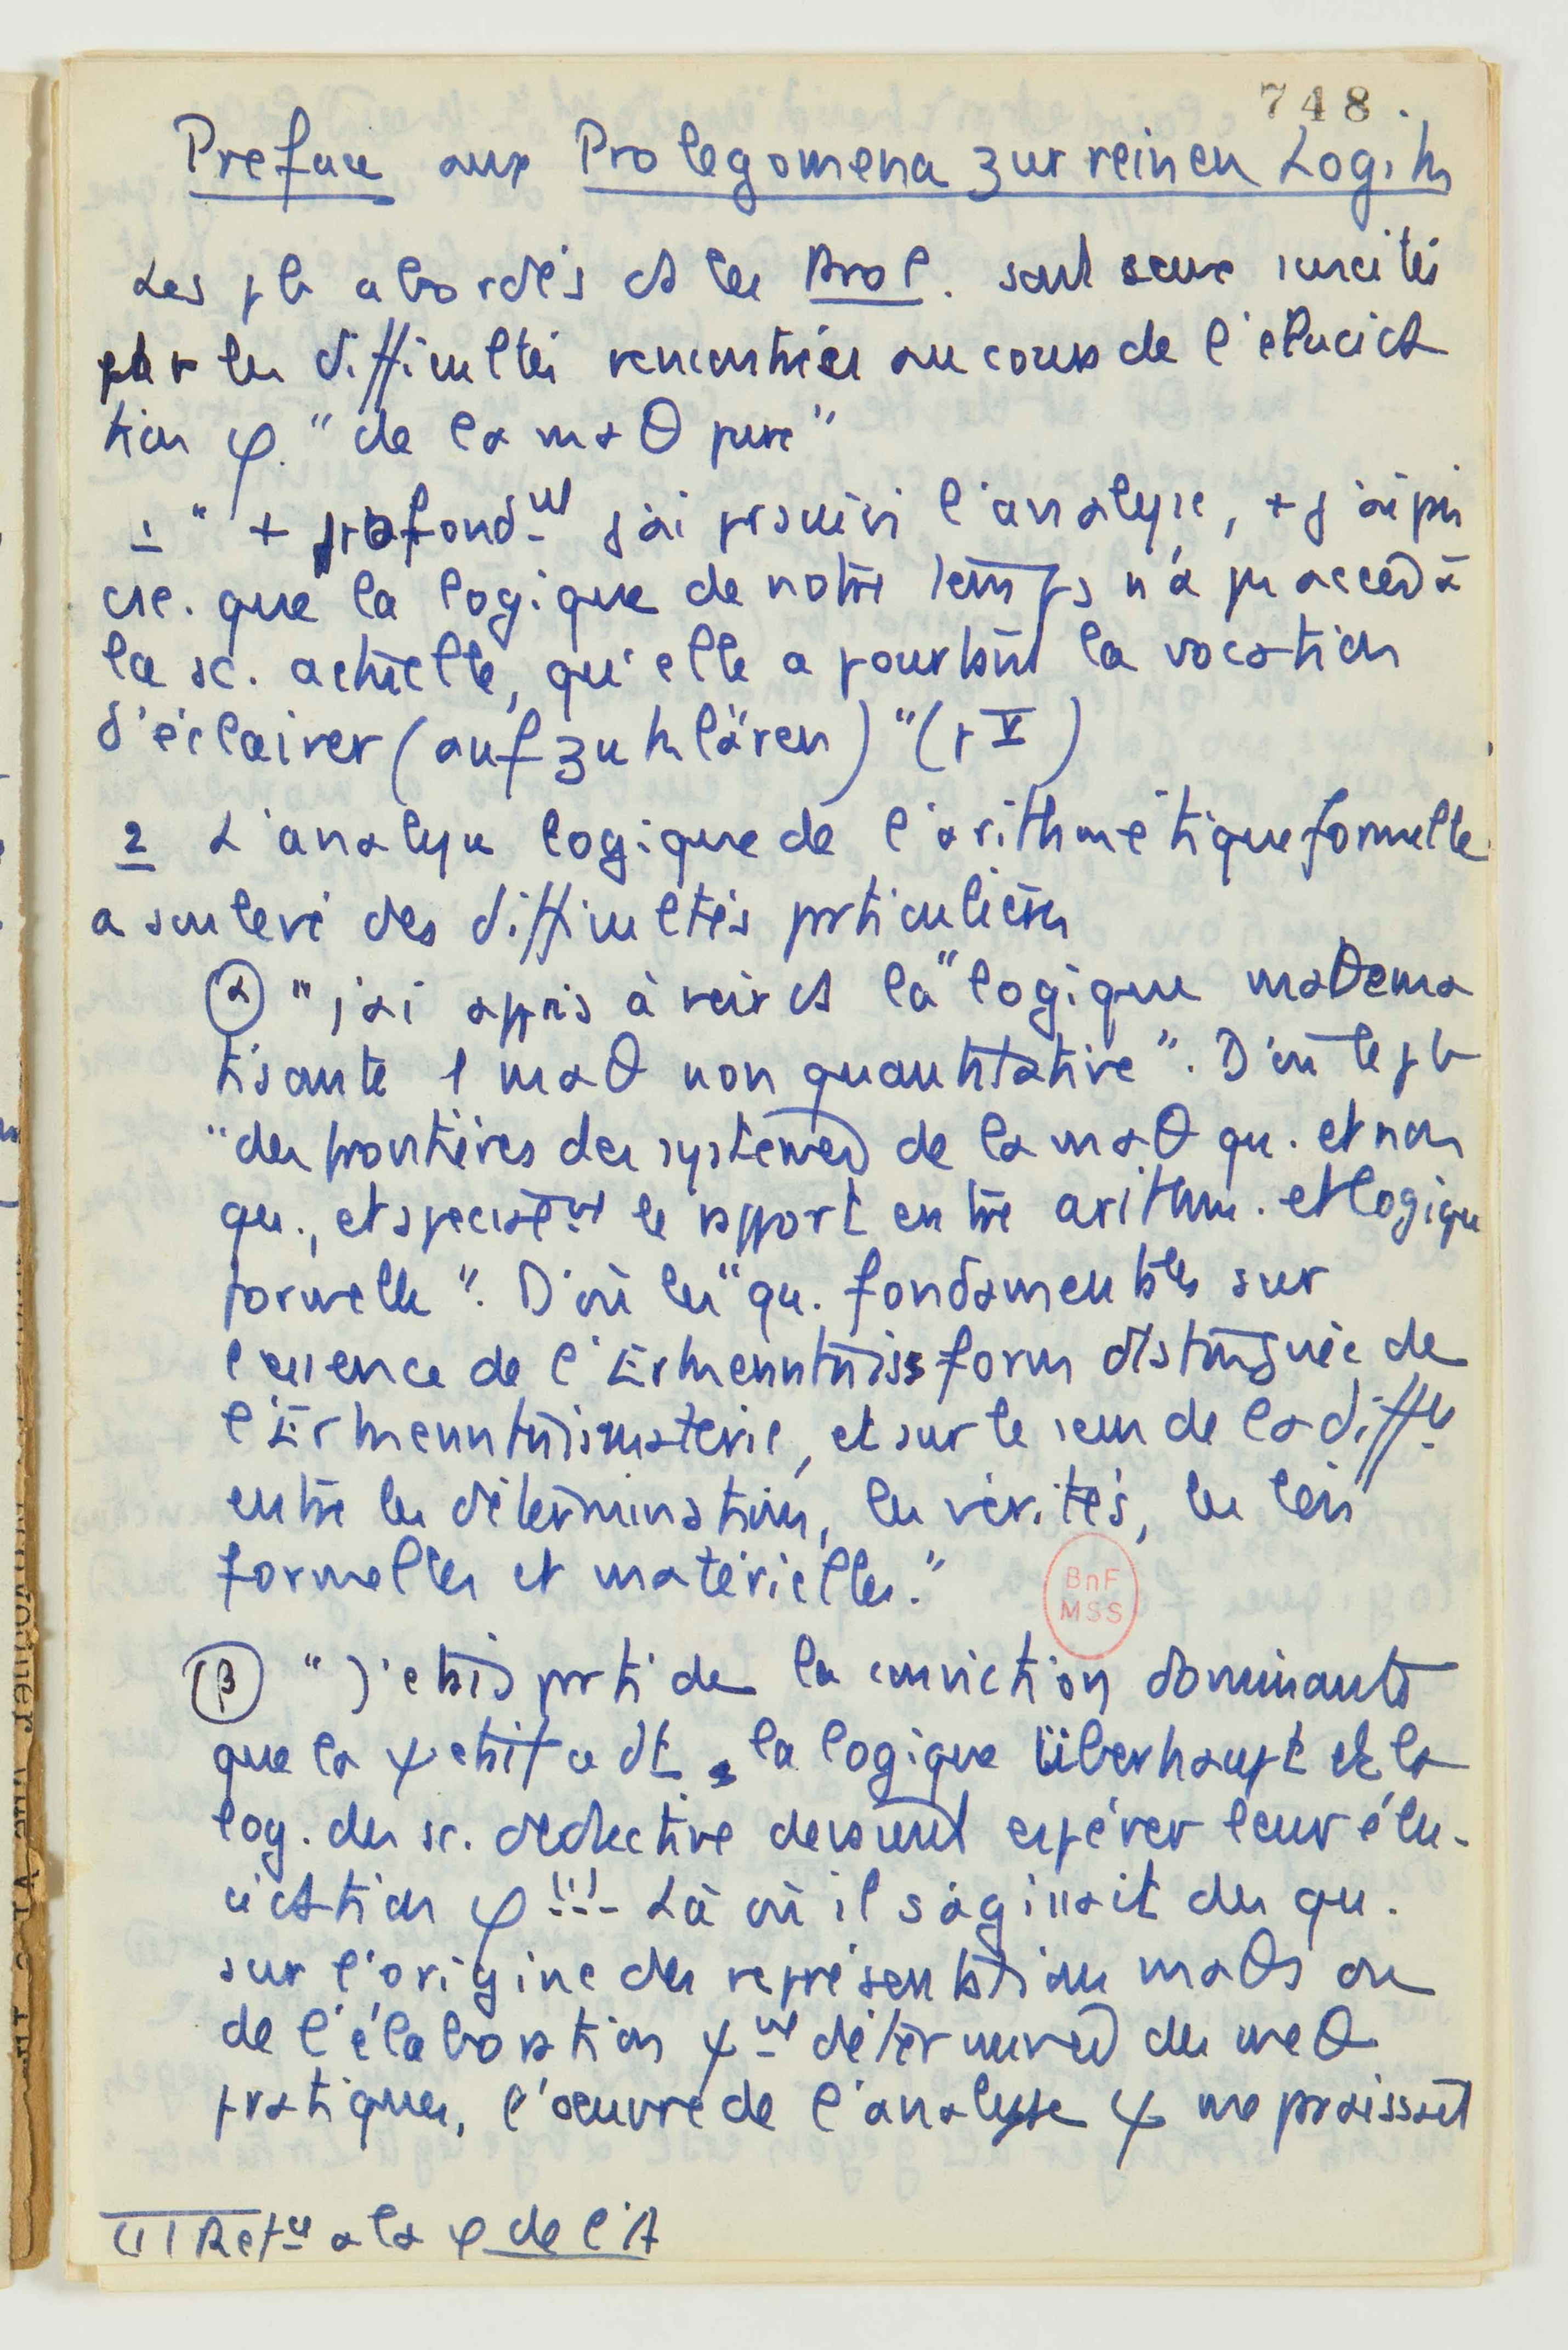 748.
Preface aux Prolegomena zur reinen Logik
Les pb abordés ds les Prol. sont ceux suscités
par les difficultés rencontrées au cours de l'élucida
tion φ. "de la maθ pure"
1 " + profond.nt j'ai psuivi l'analyse, + j'ai pris
csc. que la logique de notre temps n'a pu accéd à
la sc. actuelle, qu'elle a pourtant la vocation
d'éclairer (aufzuklären)" (p V)
2 L'analyse logique de l'arithmétique formelle
a soulevé des difficultés prticulières
α "j'ai appris à voir ds la" logique maθema
tisante 1 maθ non quantitative". D'où le pb
"des frontières des systèmes de la maθ qu. et non
qu., et spécialent le rapport entre arithm. et logique
formelle". D'où les "qu. fondamentales sur
l'essence de l'Erkenntnissform distinguée de
l'Erkenntnissmaterie, et sur le sens de la diffce
entre les déterminations, les vérités, les lois
formelles et matérielles."
BnF
MSS
β "J'étais prti de la conviction dominante
que la ψ était ce dt la logique überhaupt et la
log. des sc. déductive devaient espérer leur élu-
cidation φ !!! Là où il s'agissait des qu.
sur l'origine des représentations maθs ou
de l'élaboration ψnt déterminée des meθ
pratiques, l'oeuvre de l'analyse ψ me praissait
(1) Retr à la φ de l'A